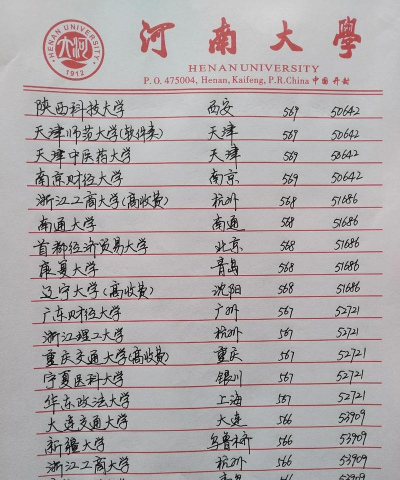 HENAN UNIVERSITY
1912
河南大學
HENAN UNIVERSITY
P.O. 475004, Henan, Kaifeng, P.R.China 中国 开封
陕西科技大学 西安 569 50642
天津师范大学(软件类) 天津 569 50642
天津中医药大学 天津 569 50642
南京财经大学 南京 569 50642
浙江工商大学(高收费) 杭州 568 51686
南通大学 南通 568 51686
首都经济贸易大学 北京 568 51686
康复大学 青岛 568 51686
辽宁大学(高收费) 沈阳 568 51686
广东财经大学 广州 567 52721
浙江理工大学 杭州 567 52721
重庆交通大学(高收费) 重庆 567 52721
宁夏医科大学 银川 567 52721
华东政法大学 上海 567 52721
大连交通大学 大连 566 53909
新疆大学 乌鲁木齐 566 53909
浙江工商大学 杭州 566 53909